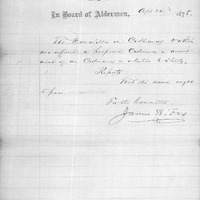 In Board of Aldermen, Apr 22 1878.
The Committee on Ordinances to whom
was referred a proposed Ordinance in amend-
ment of an Ordinance in relation to
Report
that the same ought
to pass
For the Committee,
James W. Fox